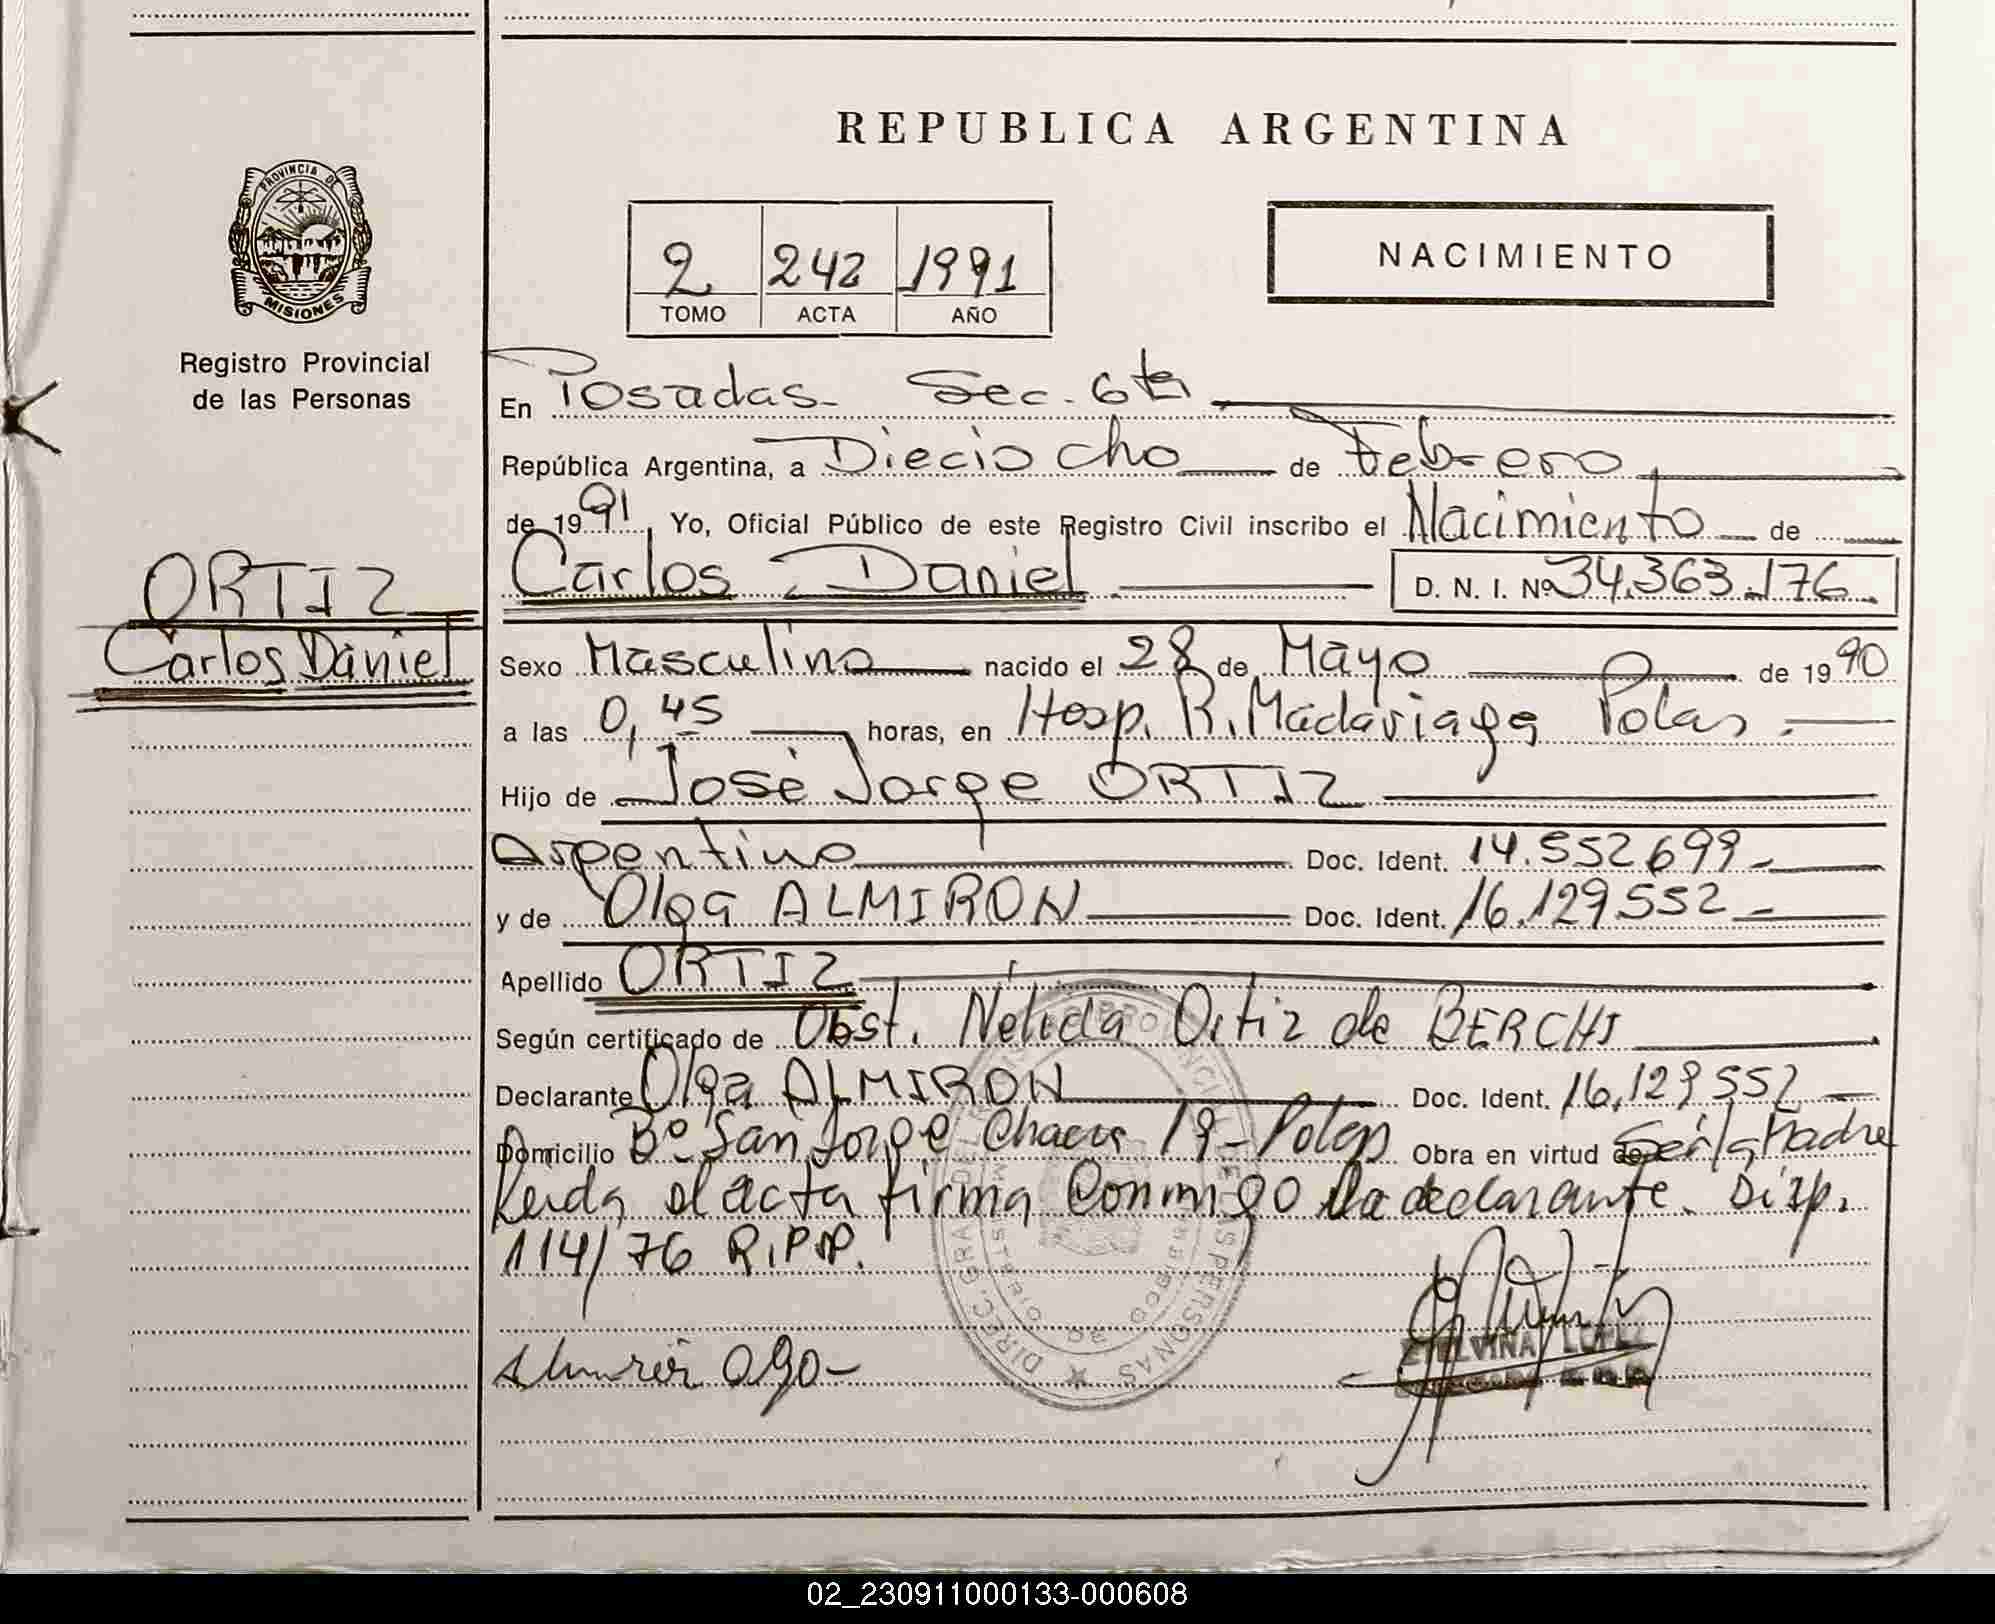 REPUBLICA ARGENTINA
PROVINCIA DE
MISIONES
Registro Provincial
de las Personas
2 242 1991
TOMO ACTA AÑO
NACIMIENTO
En Posadas - Sec. 6ta
República Argentina, a Dieciocho de Febrero
de 1991, Yo, Oficial Público de este Registro Civil inscribo el Nacimiento de
ORTIZ
Carlos Daniel
Carlos Daniel D. N. I. Nº 34.363.176
Sexo Masculino nacido el 28 de Mayo de 1990
a las 0,45 horas, en Hosp. R. Madariaga Pdas.
Hijo de José Jorge ORTIZ
Argentino Doc. Ident. 14.552.699
y de Olga ALMIRON Doc. Ident. 16.129.552
Apellido ORTIZ
Según certificado de Obst. Nélida Ortiz de BERCHI
Declarante Olga ALMIRON Doc. Ident. 16.129.552
Domicilio Bº San Jorge Chacra 19 - Pdas Obra en virtud de Ser la Madre
Leida el acta firma Conmigo la declarante. Disp.
114/76 R.P.P.
ETELVINA
02_230911000133-000608